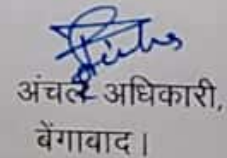 अंचल अधिकारी,
बेंगाबाद।